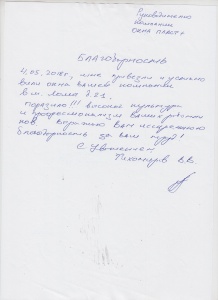 Руководителю
компании
ОКНА ПЛАСТ+
БЛАГОДАРНОСТЬ
4.05.2018г. мне привезли и устано
вили окна вашей компании
в м.
поразило!!! высокая культура
и профессионализм ваших работни
ков. выражаю Вам искреннюю
благодарность за Ваш труд!
С Уважением
Тихомиров В.В.